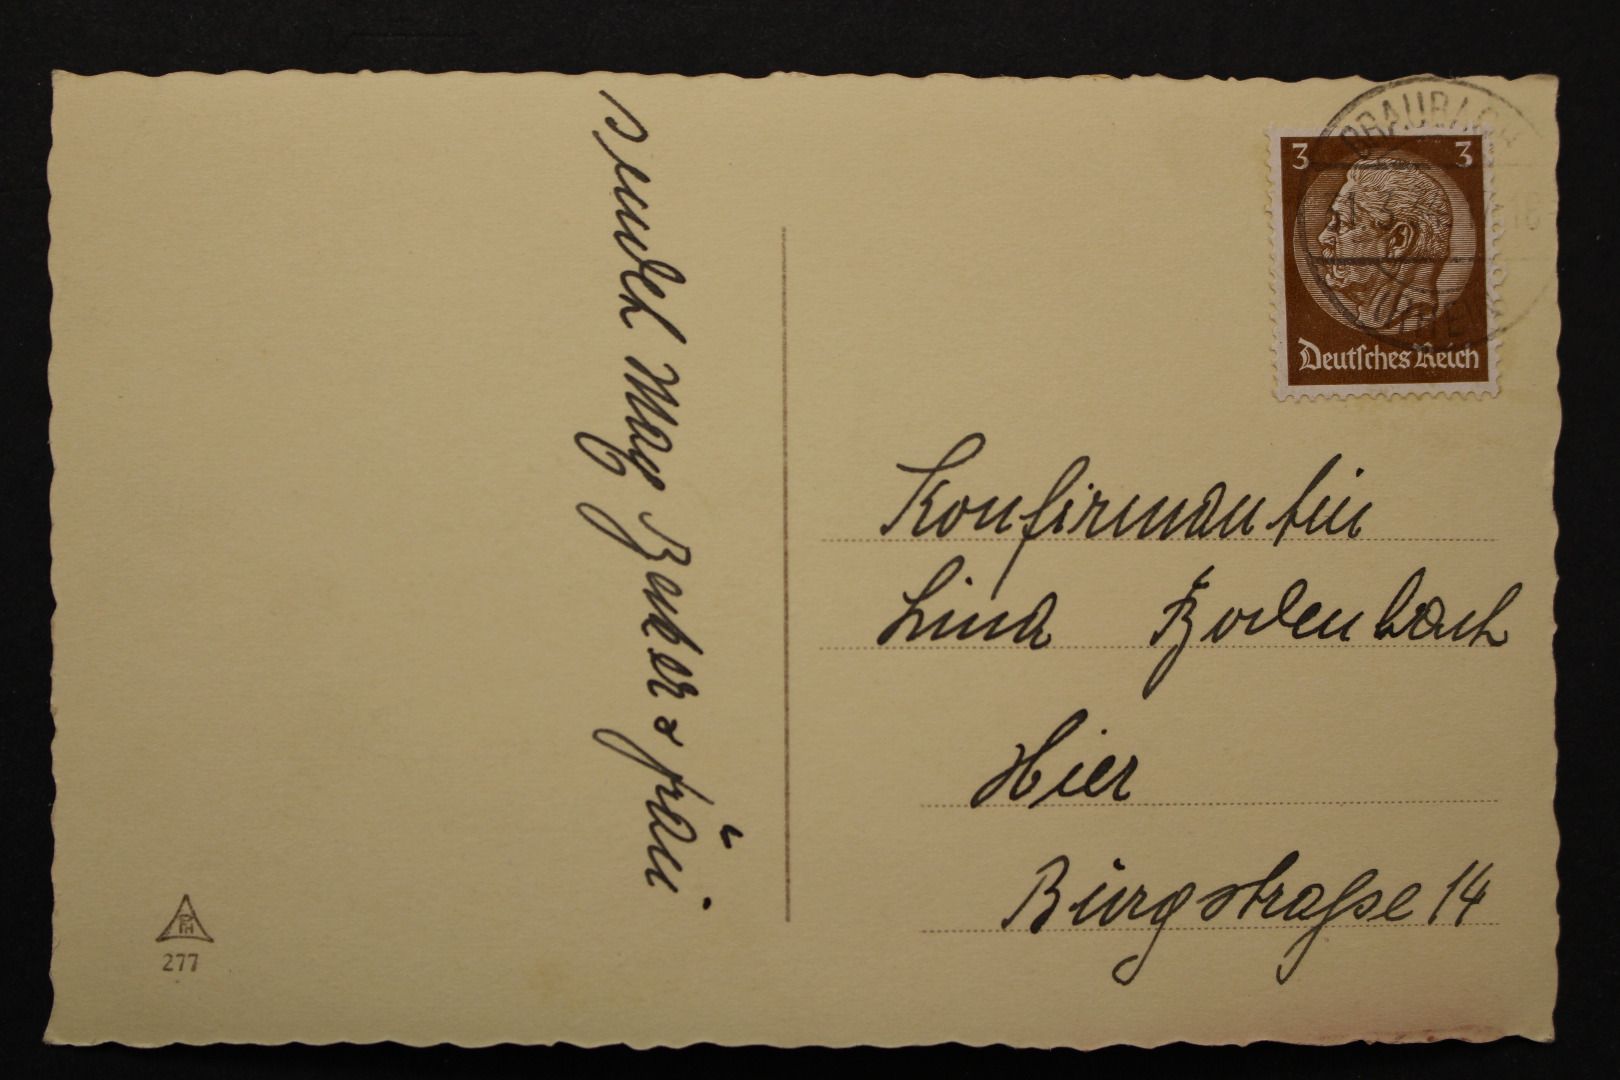 sendet Mag Becker & frau.
3 3
Deutsches Reich
BRAUBACH
Konfirmantin
Lina Bodenbach
Hier
Burgstraße 14
PH
277